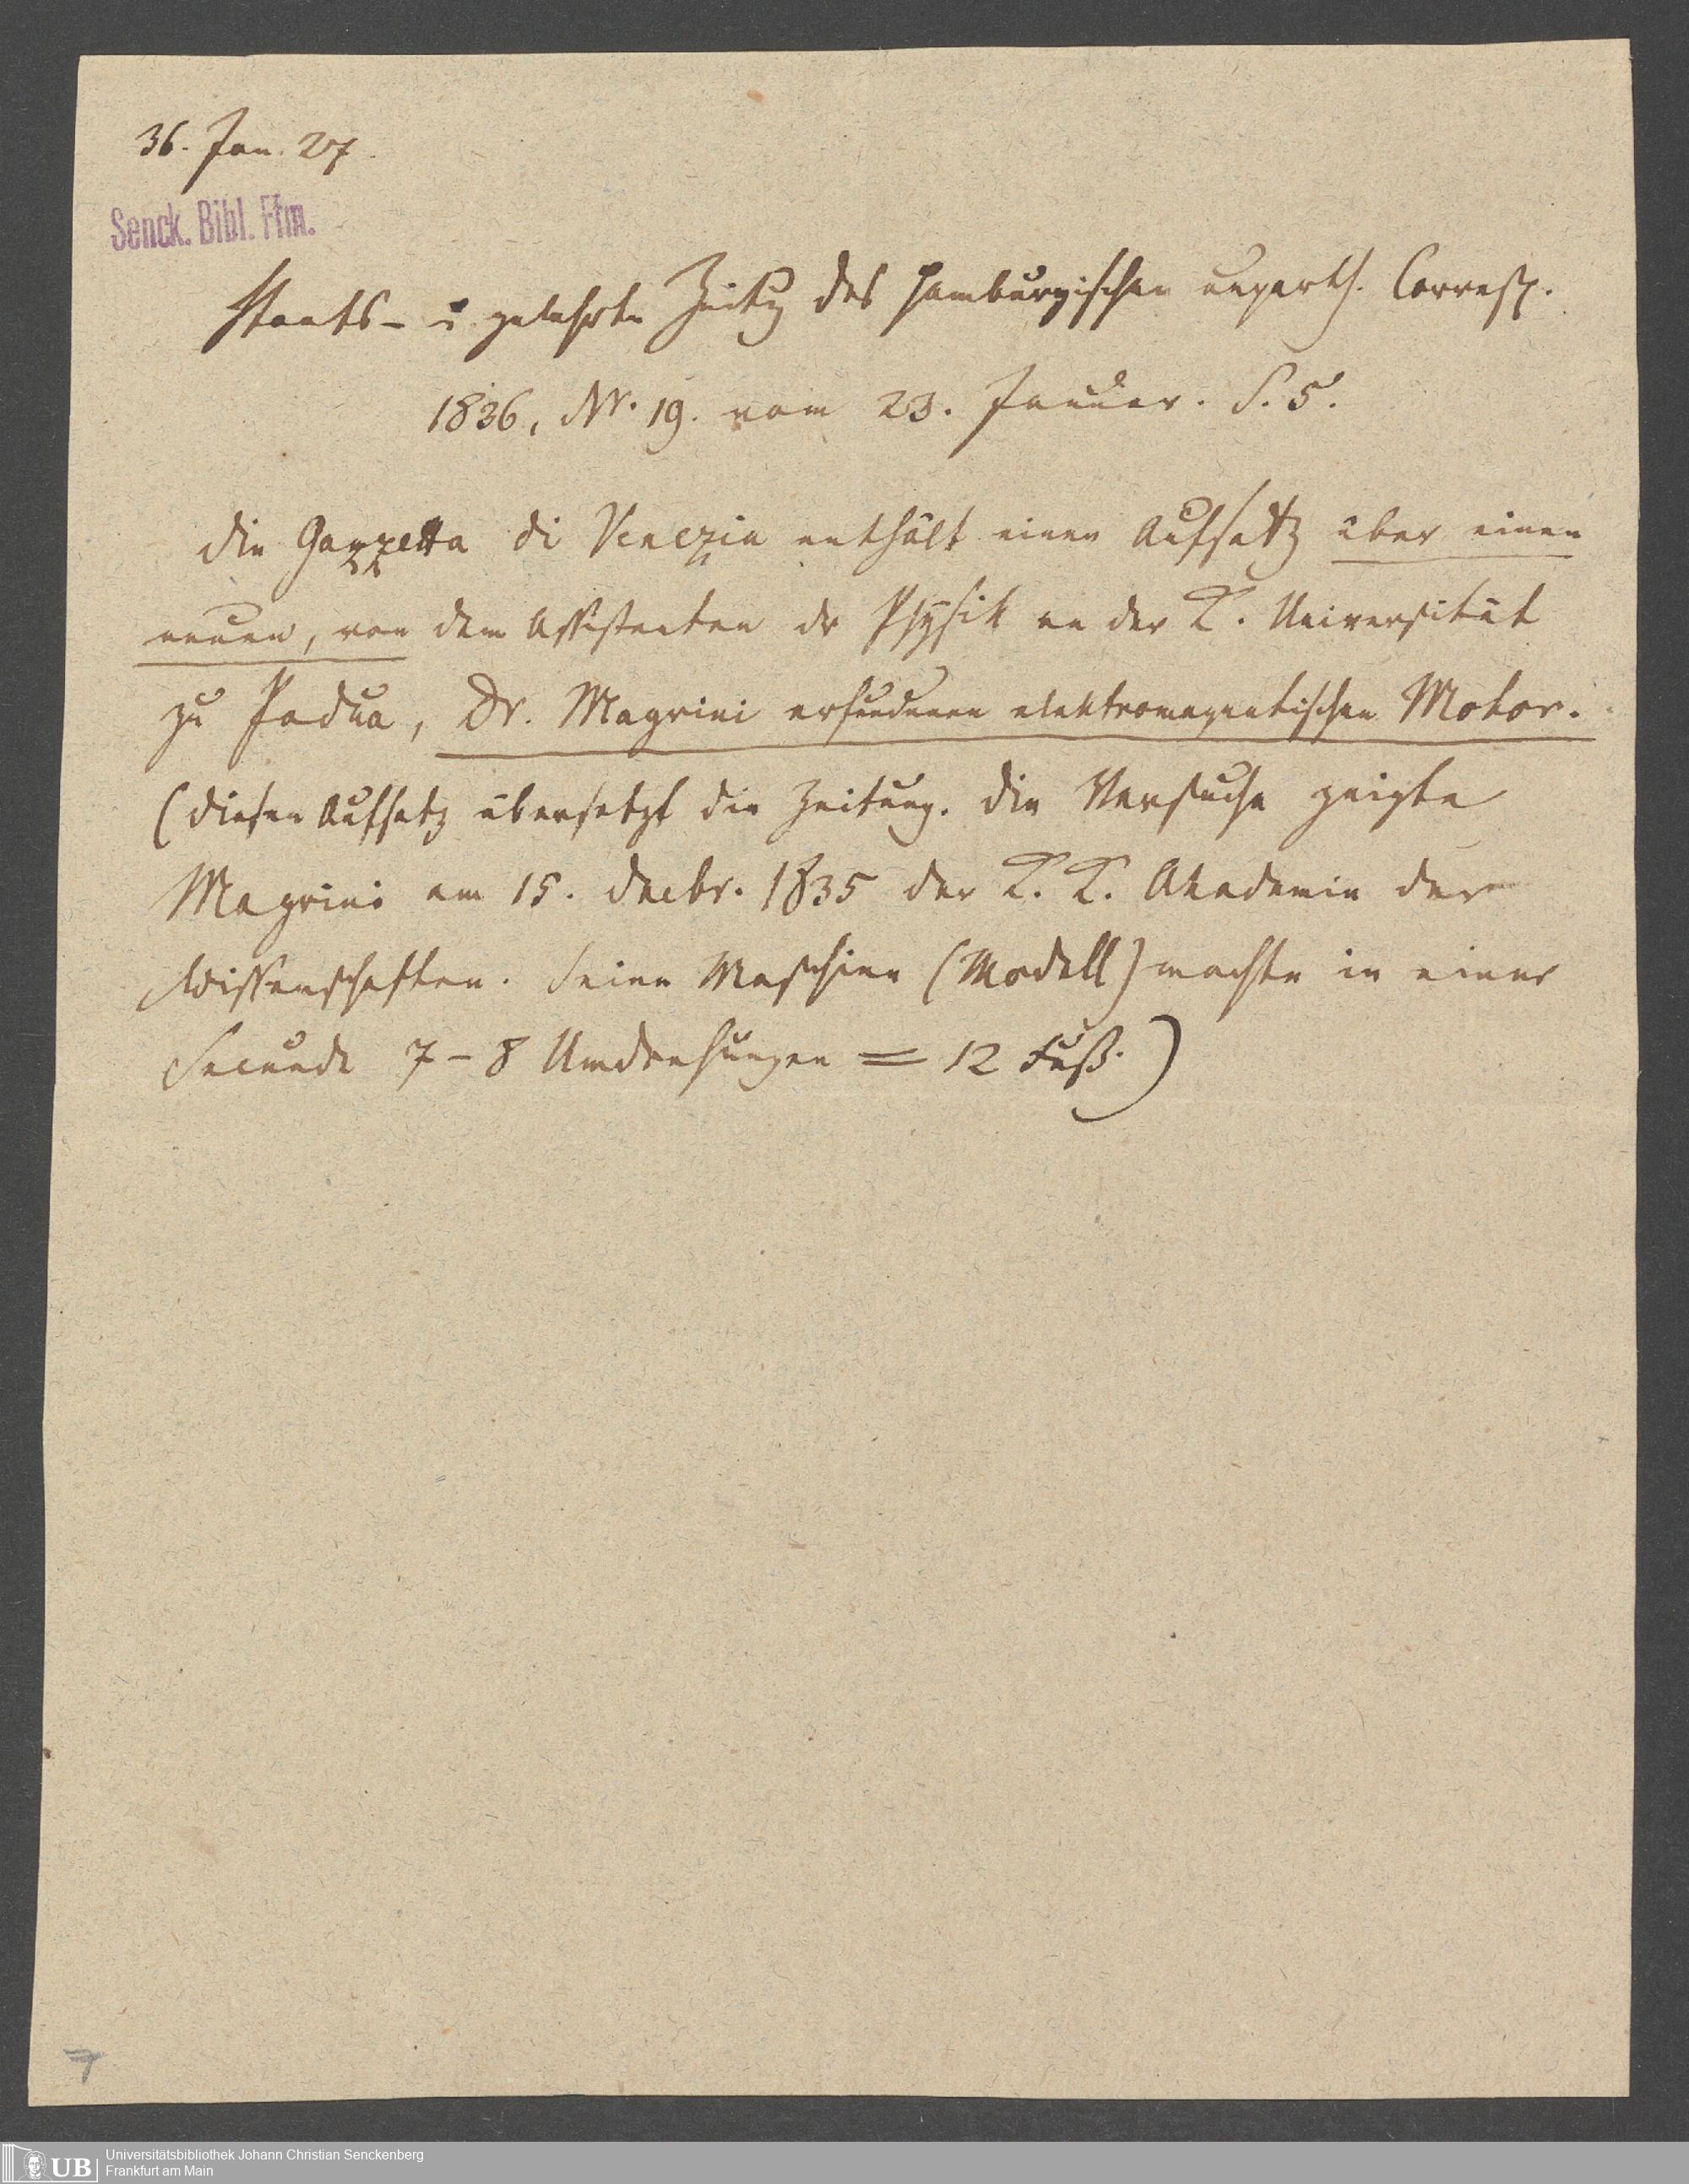 36. Jan. 27.
Senck. Bibl. Ffm.
Staats- u. gelehrte Zeitg des Hamburgischen unparth. Corresp.
1836, Nr. 19. vom 23. Januar. S. 5.
Die Gazzetta di Venezia enthält einen Aufsatz über einen
neuen, von dem Assistenten der Physik an der K. Universität
zu Padua, Dr. Magrini erfundenen elektromagnetischen Motor.
(Diesen Aufsatz übersetzt die Zeitung. Die Versuche zeigte
Magrini am 15. Decbr. 1835 der K. K. Akademie der
Wissenschaften. Seine Maschine (Modell) machte in einer
Secunde 7-8 Umdrehungen = 12 Fuß.)
7
UB
Universitätsbibliothek Johann Christian Senckenberg
Frankfurt am Main